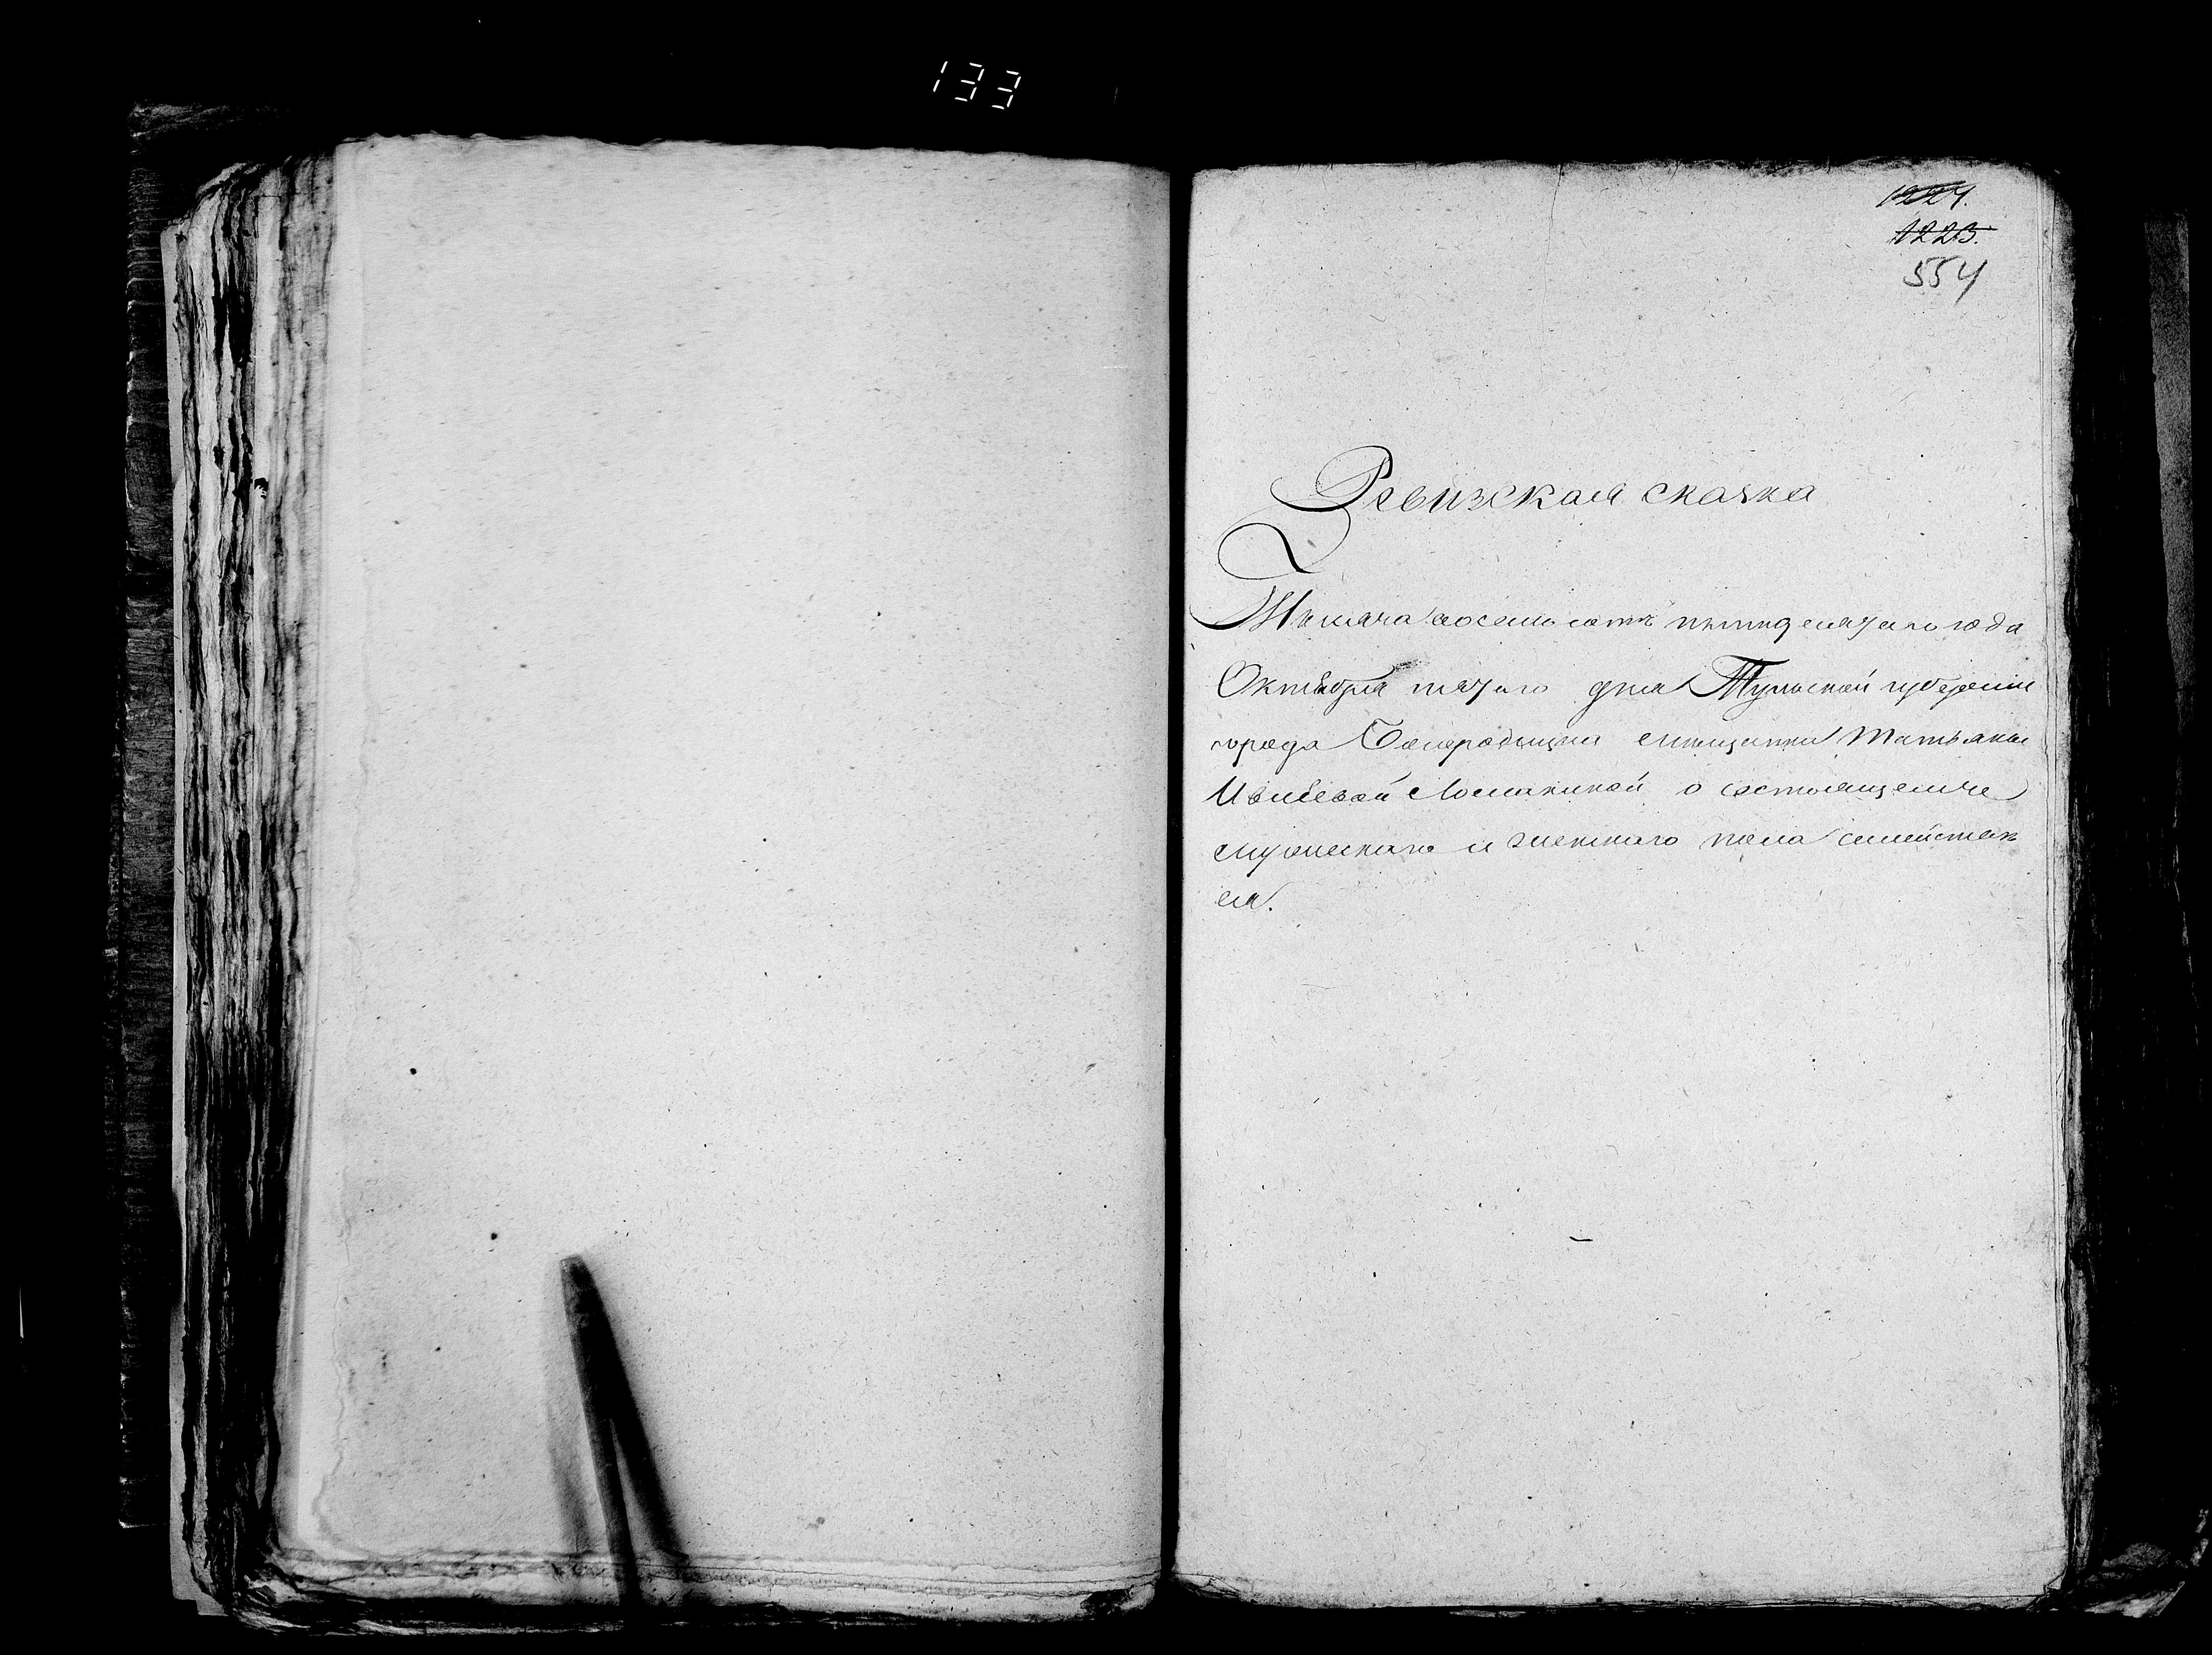 133
1224.
1223.
554
Ревизская сказка
Тысяча восемь сотъ пятидесятаго года
Октября пятаго дня Тульской губернии
города Богородицка мещанки Татьяны
Ивлевой Ломакиной о состоящемъ
мужескаго и женскаго пола семействѣ
ея.